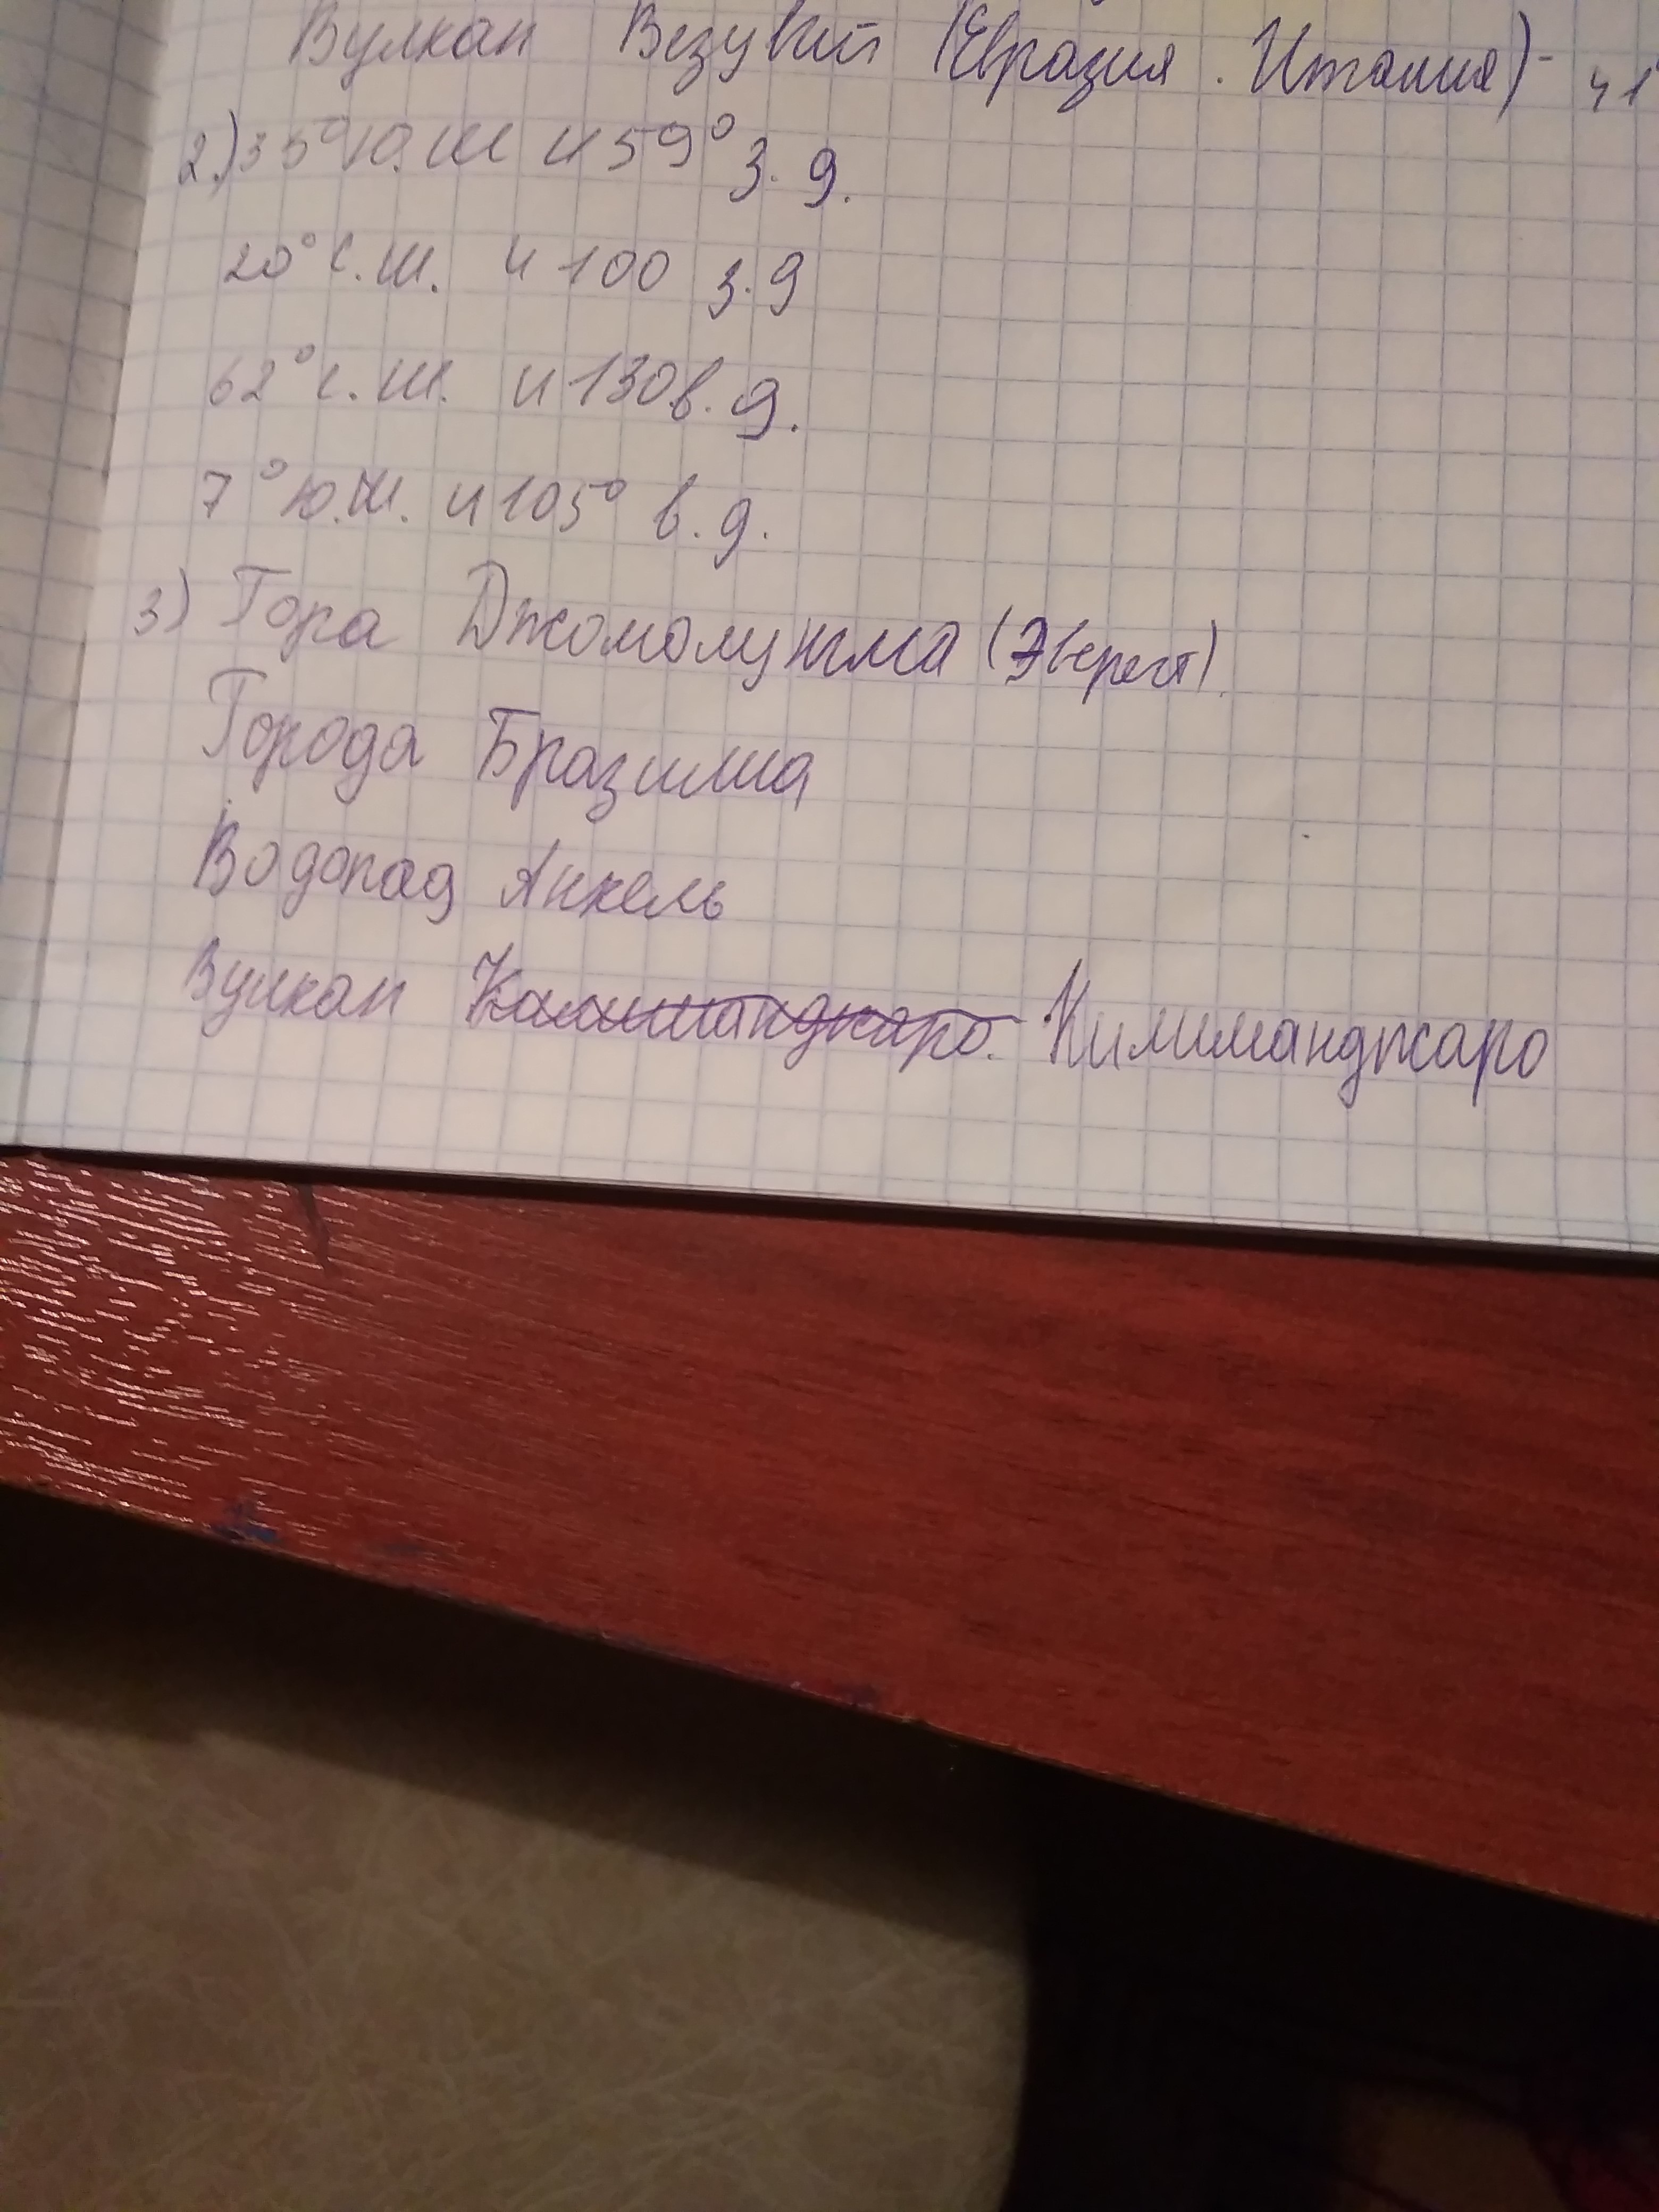 Вулкан Везувий (Евразия. Италия)- 41
2.) 35° Ю.Ш и 59° З. д.
20° С.Ш. и 100 З.д
62° С.Ш. и 130 в. д.
7° Ю.Ш. и 105° в. д.
3) Гора Джомолунгма (Эверест).
Города Бразилиа
Водопад Анхель
Вулкан Калиманджаро. Килиманджаро